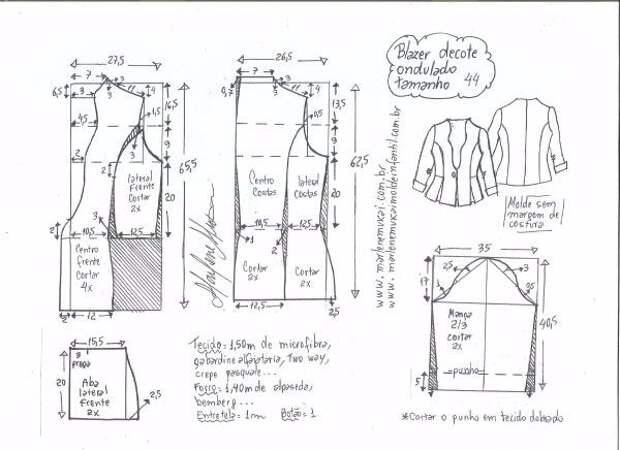 27,5
7
3
6,5
3
4
16,5
1,5
4,5
9
3
2
2
lateral
Frente
Cortar
2x
20
65,5
3
2
10,5
12,5
Centro
frente
Cortar
4x
2
12
26,5
7
0,7
3
4
13,5
0,5
9
62,5
Centro
Costas
lateral
Costas
20
10,5
12,5
1
2
Cortar
2x
Cortar
2x
12,5
2,5
Blazer decote
ondulado
tamanho 44
www.marlenemukai.com.br
www.marlenemukaimoldeinfantil.com.br
Molde sem
margem de
costura
35
2,5
3
17
1
3,5
Manga
2/3
cortar
2x
40,5
=punho=
5
*Cortar o punho em tecido dobrado
15,5
3
prega
20
Aba
lateral
frente
2x
2,5
Tecido = 1,50m de microfibra,
gabardine alfaiataria, Two way,
crepe pasquale...
Forro = 1,40m de alpaseda,
bemberg...
Entretela = 1m Botão = 1